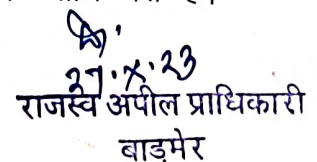 27.X.23
राजस्व अपील प्राधिकारी
बाड़मेर